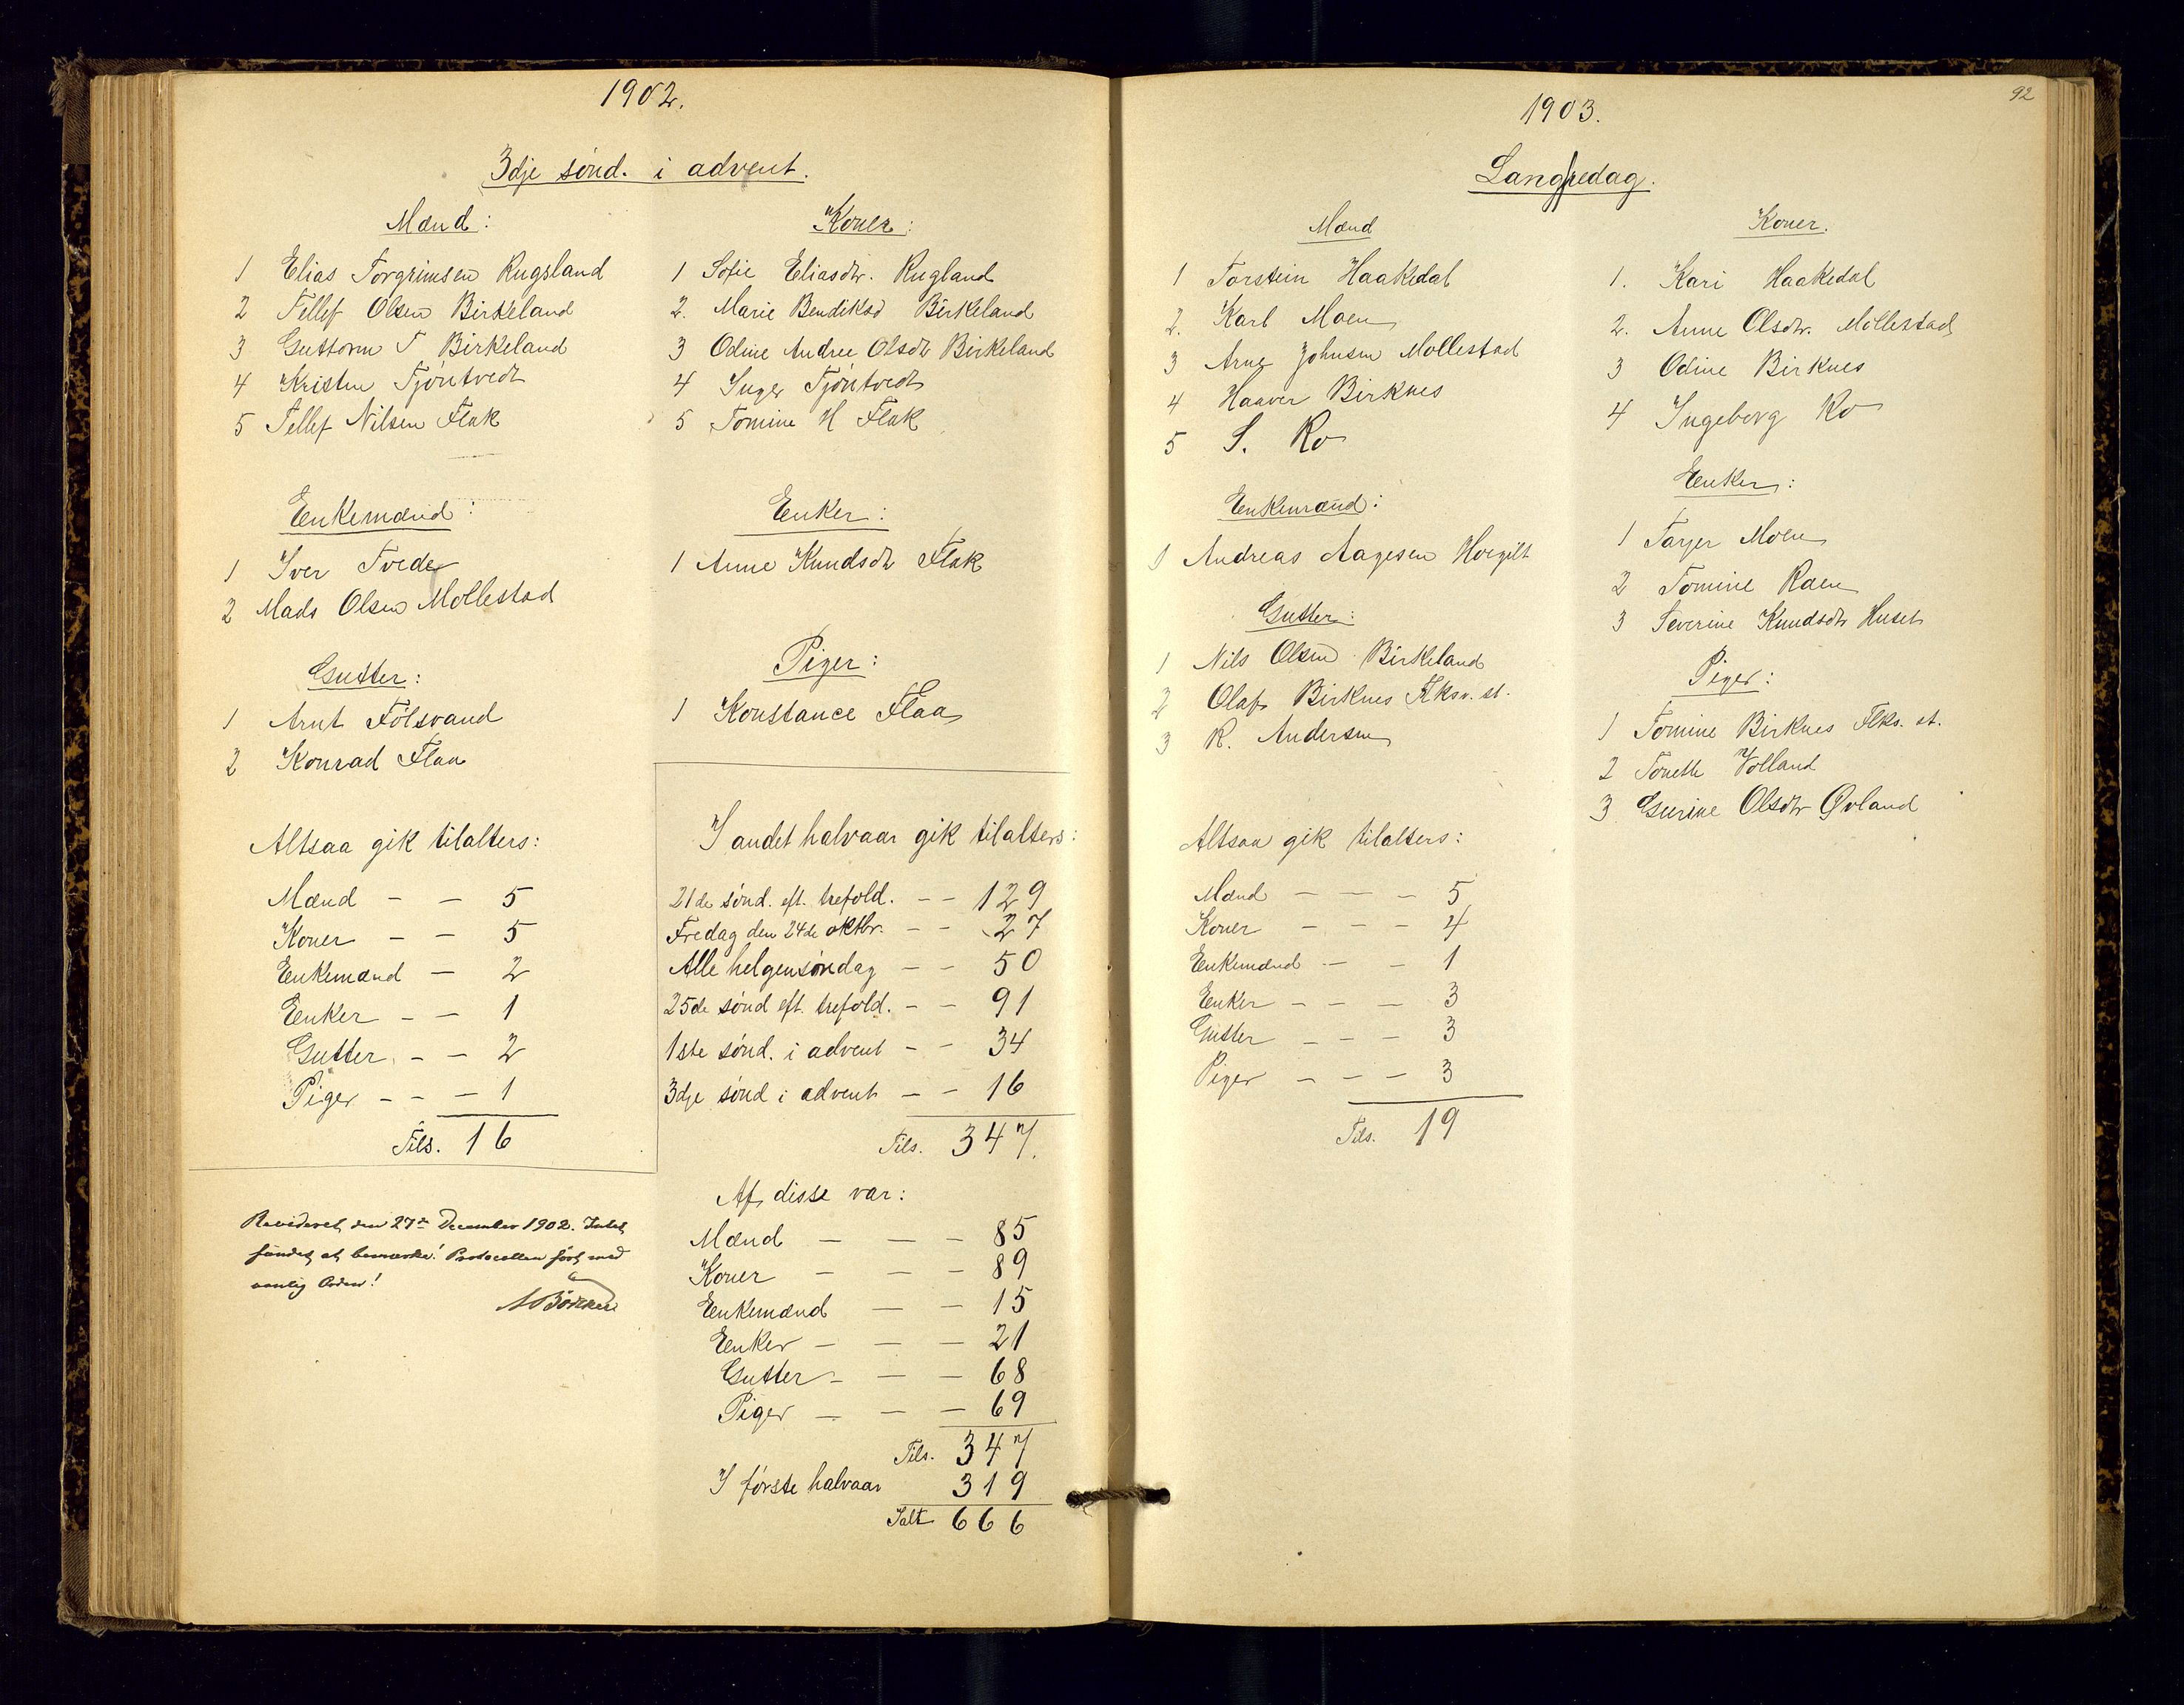 1902.
3dje sönd. i advent.
Mænd:
1 Elias Torgrimsen Rugsland
2 Tellef Olsen Birkeland
3 Guttorm T Birkeland
4 Kristen Tjöntvedt
5 Tellef Nilsen Flak
Koner:
1 Sofie Eliasdtr. Rugland
2. Marie Bendiksd Birkeland
3 Odine Andree Olsdtr Birkeland
4 Inger Tjöntvedt
5 Tomine H Flak
Enkemænd:
1 Iver Tvede
2 Mads Olsen Mollestad
Enker:
1 Anne Knudsdtr Flak
Gutter:
1 Arnt Fölsvand
2 Konrad Flaa
Piger:
1 Konstance Flaa
Altsaa gik tilalters:
Mænd - - 5
Koner - - 5
Enkemænd - 2
Enker - - 1
Gutter - - 2
Piger - - - 1
Tils. 16
Revideret den 27de December 1902. Intet
fundet at bemærke! Protocollen ført med
vanlig Orden!
I andet halvaar gik tilalters:
21de sönd. eft. trefold. - - 129
Fredag den 24de oktbr. - - 27
Alle helgensöndag - - 50
25de sönd eft. trefold. - - 91
1ste sönd. i advent - - 34
3dje sönd i advent - - 16
Tils. 347.
Af disse var:
Mænd - - - 85
Koner - - - 89
Enkemænd - - 15
Enker - - - 21
Gutter - - - 68
Piger - - - 69
Tils. 347
I förste halvaar 319
Ialt 666
92
1903.
Langfredag.
Mænd
1 Torstein Haakedal
2. Karl Moen
3 Arne Johnsen Mollestad
4 Haaver Birknes
5 S. Ro
Koner.
1. Kari Haakedal
2. Anne Olsdtr. Mollestad
3 Odine Birknes
4 Ingeborg Ro
Enkemænd:
1 Andreas Aagesen Hoegilt
Enker:
1 Torjer Moen
2 Tomine Raen
3 Severine Knudsdtr Huset
Gutter:
1 Nils Olsen Birkeland
2 Olaf Birknes Flksv. st.
3 R. Andersen
Piger:
1 Tomine Birknes Flks. st.
2 Tonette Volland
3 Gurine Olsdtr Øvland
Altsaa gik tilalters:
Mænd - - - 5
Koner - - - 4
Enkemænd - - 1
Enker - - - 3
Gutter - - - 3
Piger - - - 3
Tils. 19